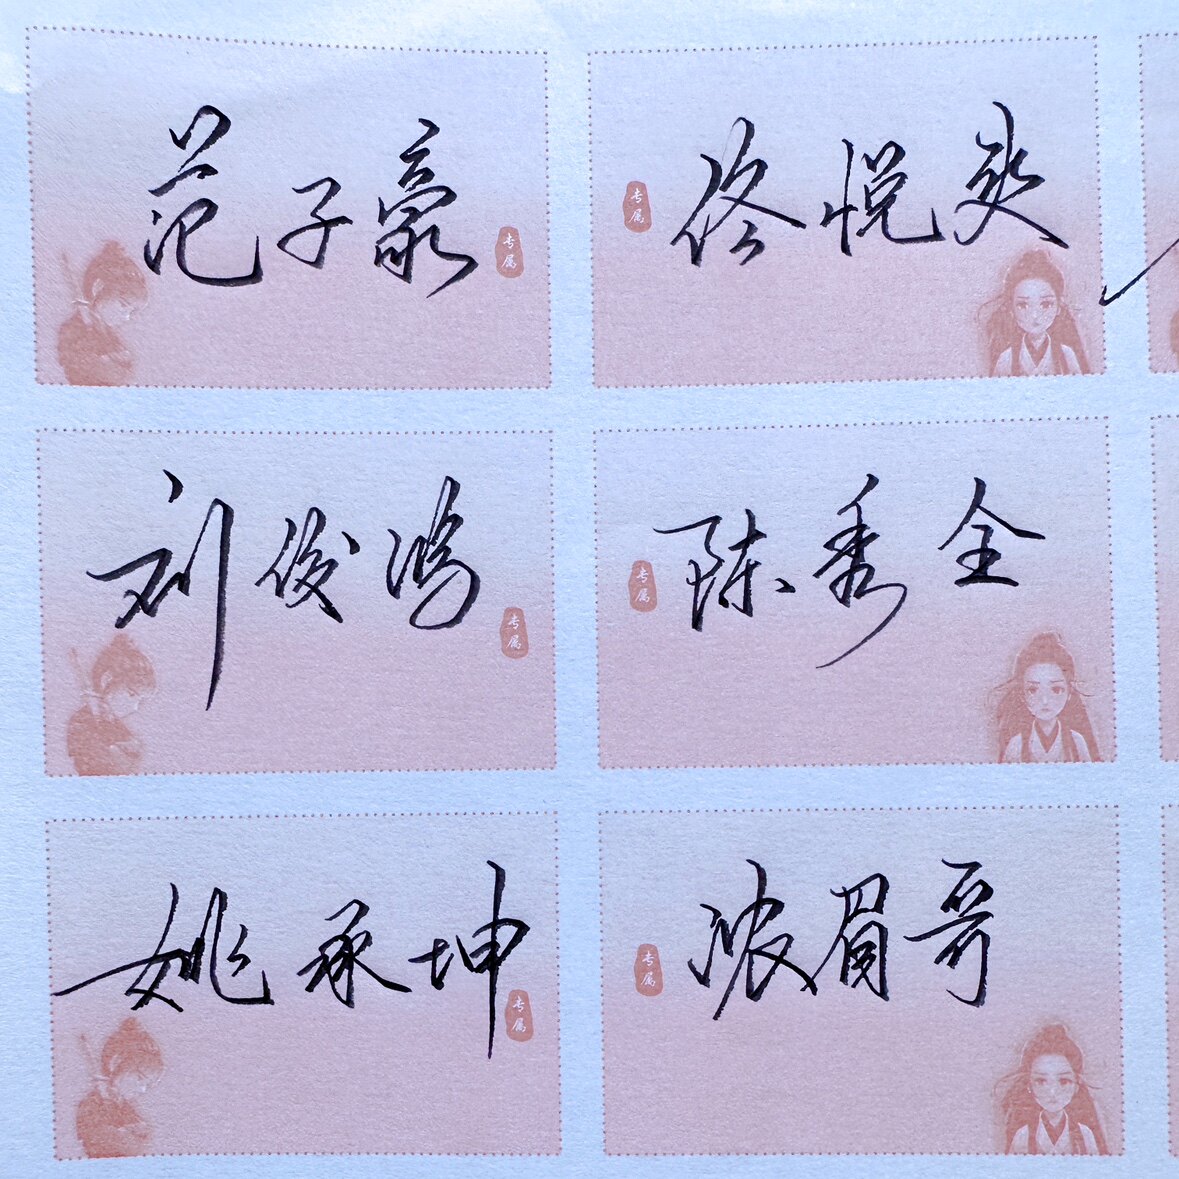 范子豪
专属
佟悦爽
专属
刘俊鸿
专属
陈秀全
专属
姚承坤
专属
浓眉哥
专属